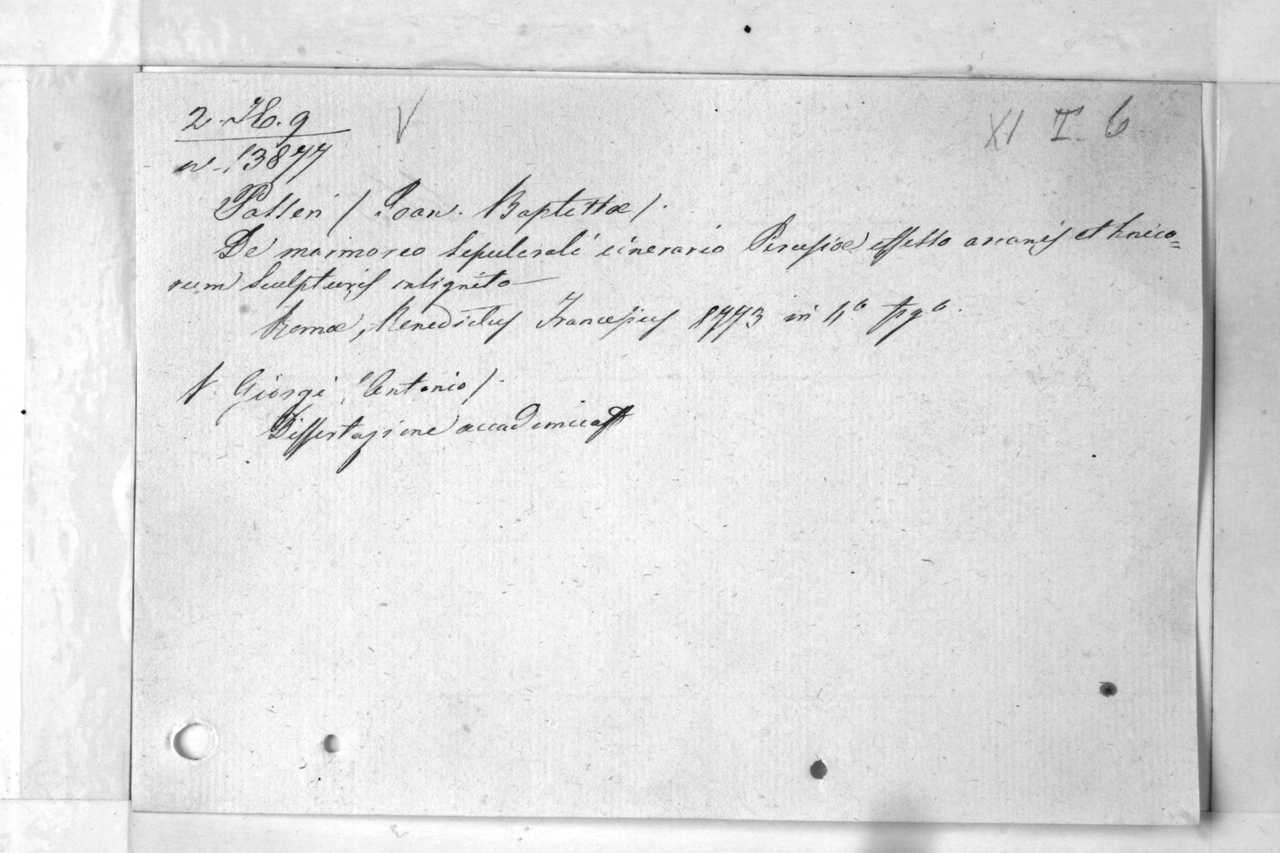 2. H. 9 V XI I. 6
n. 13877
Passeri / Joan. Baptistæ /.
De marmoreo sepulcrali cinerario Perusiæ effosso arcanis ethnico=
rum sculpturis insignito
Romæ, Benedictus Francesius 1773 in 4º fogº.
V. Giorgi, Antonio /.
Dissertazione accademica